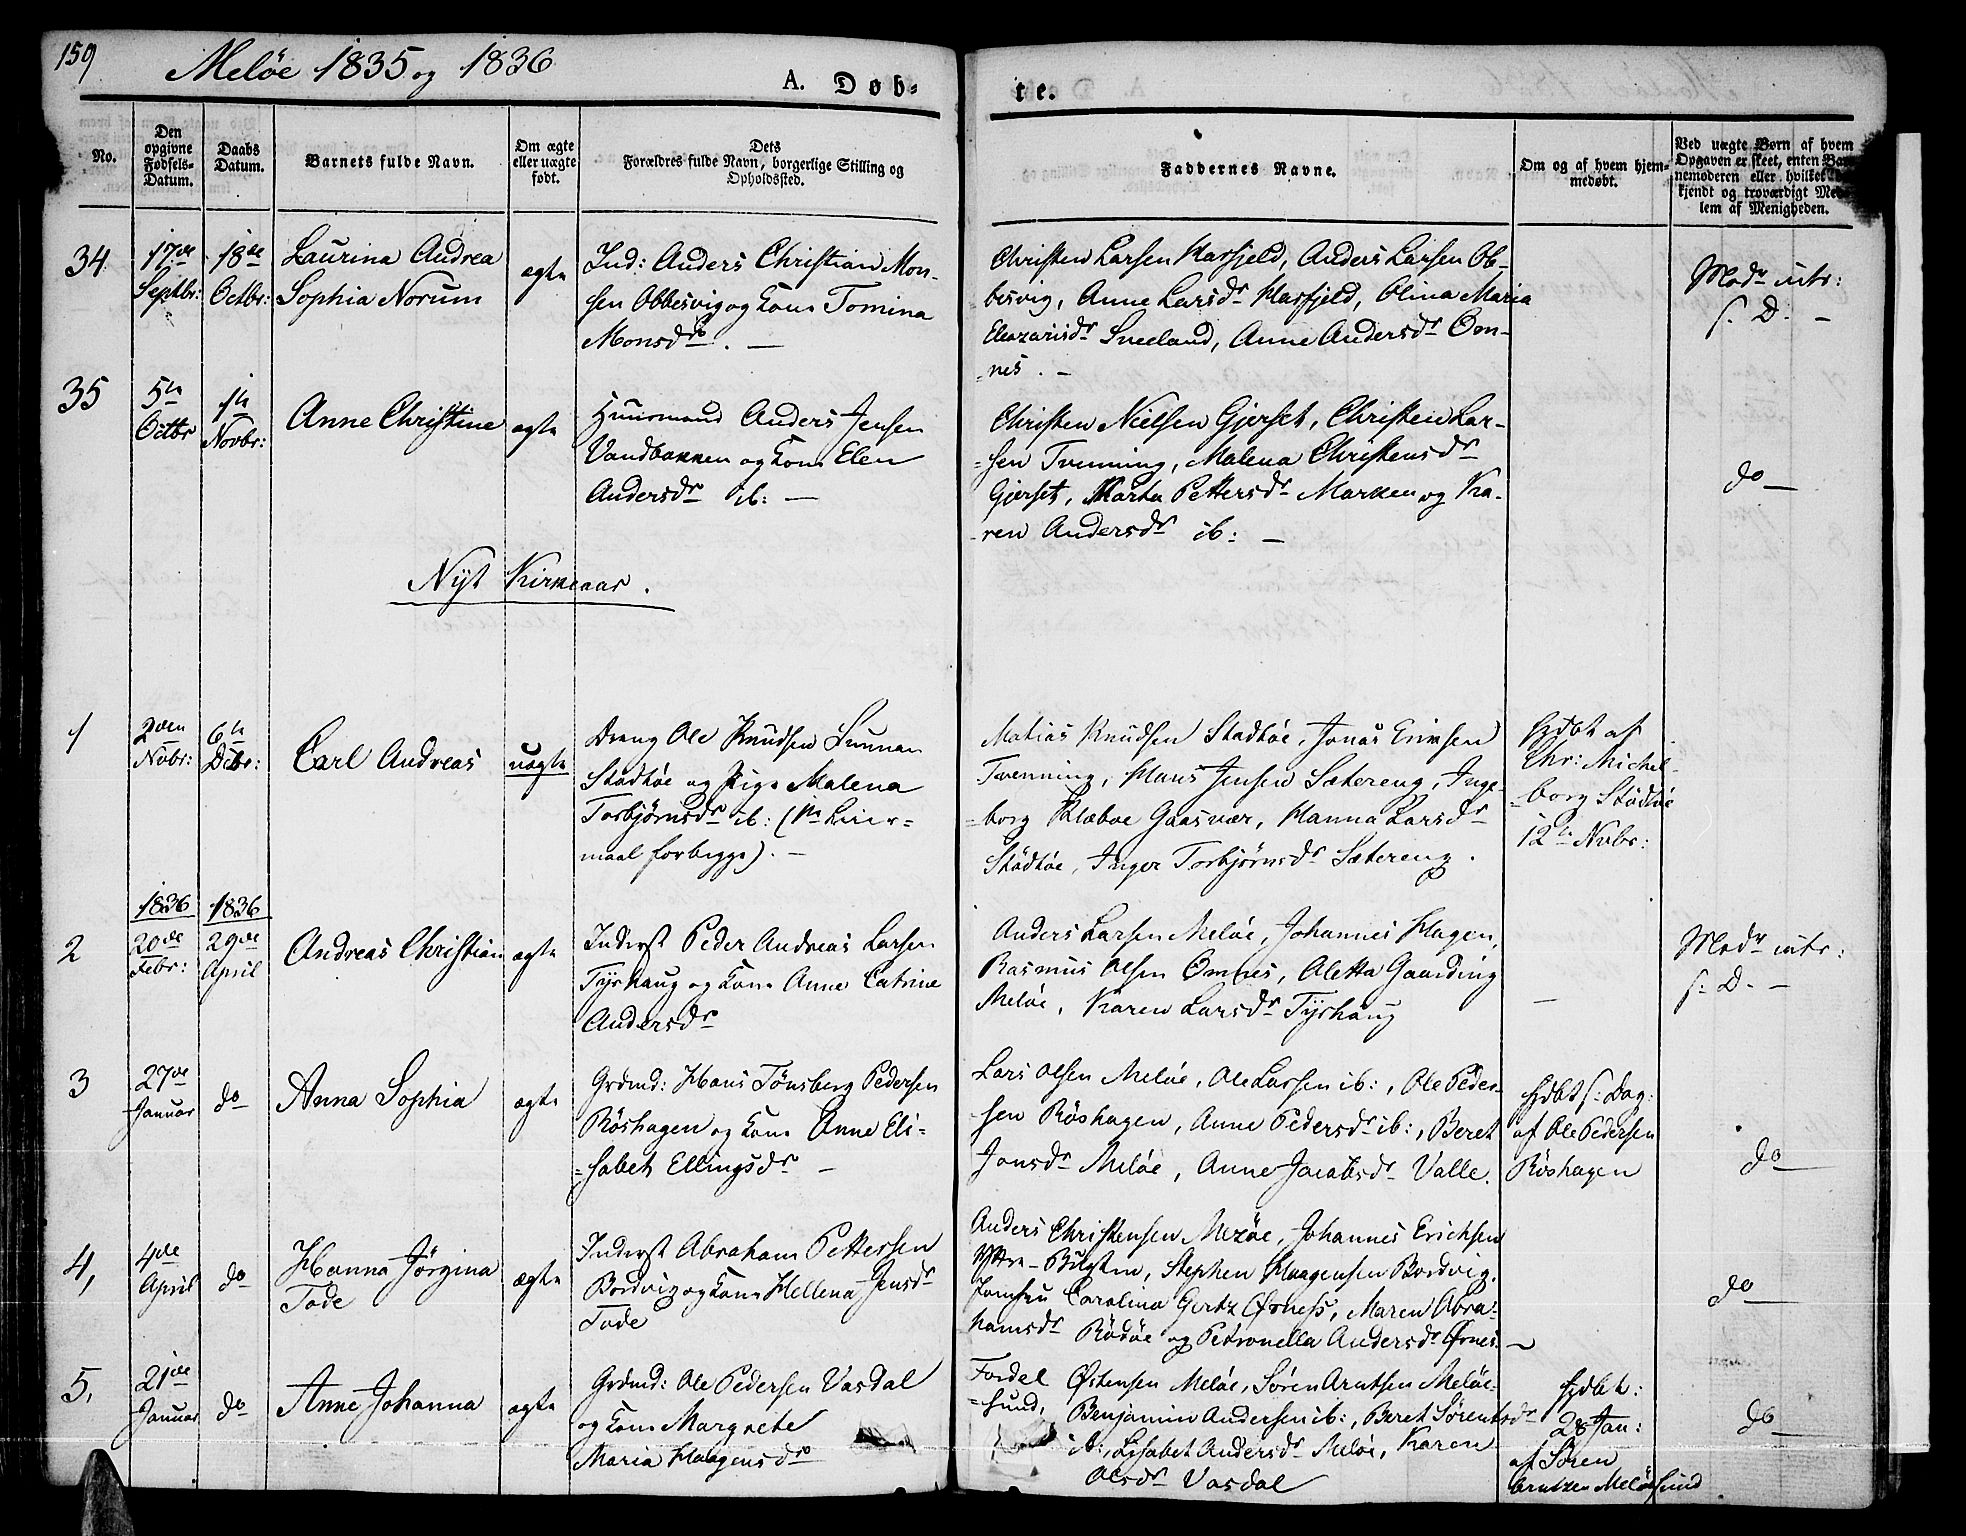 159
Meløe 1835 og 1836
A. Døb-
te.
No.
Den
opgivne
Fødsels-
Datum.
Daabs
Datum.
Barnets fulde Navn.
Om ægte
eller uægte
født.
Dets
Forældres fulde Navn, borgerlige Stilling og
Opholdssted.
Faddernes Navne.
Om og af hvem hjem-
medøbt.
Ved uægte Børn af hvem
Opgaven er skeet, enten Bar-
nemoderen eller hvilket
kjendt og troværdigt Med-
lem af Menigheden.
34
17de
Septbr:
18de
Octbr:
Laurina Andrea
Sophia Norum
ægte
Ind: Anders Christian Mon-
sen Obbesvig og Kone Tomina
Monsdr. —
Christen Larsen Harfjeld, Anders Larsen Ob-
besvig, Anne Larsdr Harfjeld, Olina Maria
Eleazarisdr Sneeland, Anne Andersdr Om-
=nes. —
Modr intr:
s. D. —
35
5te
Octbr
1te
Novbr:
Anne Christine
ægte
Huusmand Anders Jensen
Vandbakken og Kone Elen
Andersdr ib: —
Christen Nielsen Gjerset, Christen Lar-
=sen Tvenning, Malena Christensdr
Gjerset, Marta Pettersdr Marken og Ka-
-ren Andersdr ib: —
do —
Nyt Kirkeaar.
1
2den
Novbr:
6te
Dcbr:
Carl Andreas
uægte
Dreng Ole Knudsen Sunnan
Stødtøe og Pige Malena
Torbjørnsdr ib: (1ste Leier=
maal forbigge). —
Matias Knudsen Stødtøe, Jonas Eriksen
Tvenning, Hans Jensen Sætereng, Inge-
=borg Klæboe Gaasvær, Hanna Larsdr
Stødtøe, Inger Torbjørnsdr Sætereng.
Hjdbt af
Chr: Michel-
=borg Stødtøe
12te Nvbr:
1836
1836
2
20de
Febr:
29de
April
Andreas Christian
ægte
Inderst Peder Andreas Larsen
Tyrhaug og Kone Anne Catrine
Andersdr
Anders Larsen Meløe, Johannes Hagen,
Rasmus Olsen Omnes, Aletta Gaarding
Meløe, Karen Larsdr Tyrhaug
—
Modr intr:
s. D. —
3
27de
Januar
do
Anna Sophia
ægte
Grdmd: Hans Tønsberg Pedersen
Röshagen og Kone Anne Eli-
=sabet Ellingsdr —
Lars Olsen Meløe, Ole Larsen ib:, Ole Peder-
sen Röshagen, Anne Pedersdr ib:, Beret
Jonsdr Meløe, Anne Jacobsdr Valle.
Hjdbt s: Dag:
af Ole Pedersen
Röshagen
do —
4,
4de
April
do
Hanna Jörgina
Tode
ægte
Inderst Abraham Pettersen
Bordvig og Kone Hellena Jensdr
Tode
Anders Christensen Mezöe, Johannes Erichsen
Yttre-Bilgten, Stephen Haagensen Bordvig,
Jomfru Carolina Gertz Ørness, Maren Abra-
hamsdr Rödöe og Petronella Andersdr Ørnes. —
do —
5,
21de
Januar
do
Anne Johanna
ægte
Grdmd: Ole Pedersen Vasdal
og Kone Margrete
Maria Haagensdr
Fordel Østensen Meløe, Søren Arntsen Meløe-
=sund, Benjamin Andersen ib:, Beret Sørentsdr
ib:, Lisabet Andersdr Meløe, Karen
Olsdr Vasdal
Hjdbt:
28 Jan:
af Sören
Arntzen Meløesund
do —